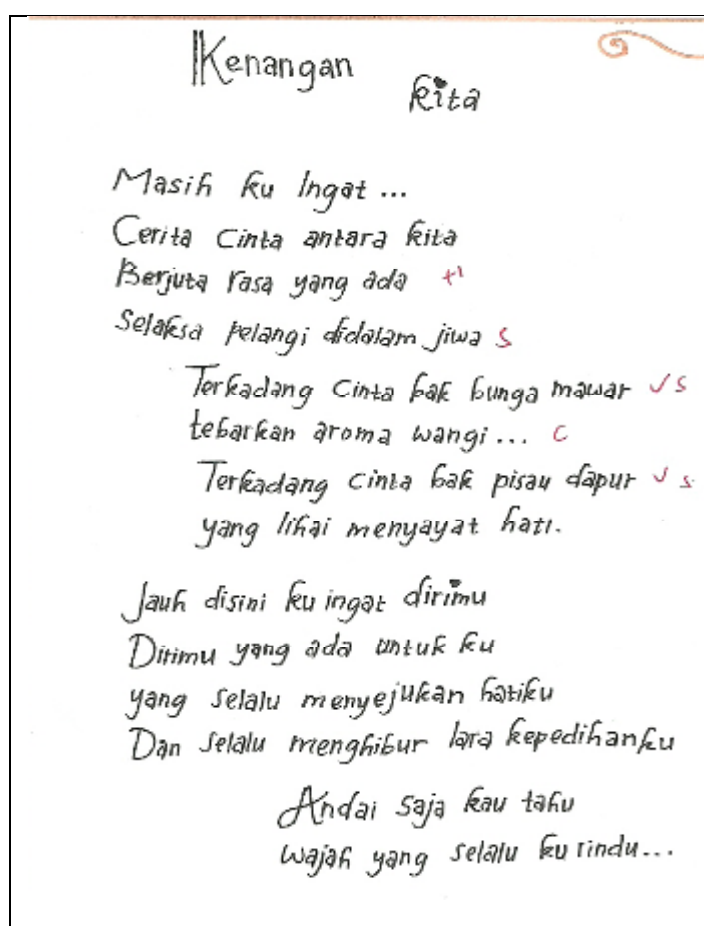 Kenangan
kita
Masih ku Ingat...
Cerita Cinta antara kita
Berjuta rasa yang ada +1
Selaksa pelangi didalam jiwa S
Terkadang Cinta bak bunga mawar √ S
tebarkan aroma wangi... C
Terkadang Cinta bak pisau dapur √ S
yang lihai menyayat hati.
Jauh disini ku ingat dirimu
Dirimu yang ada untuk ku
yang selalu menyejukan hatiku
Dan selalu menghibur lara kepedihanku
Andai saja kau tahu
wajah yang selalu ku rindu...